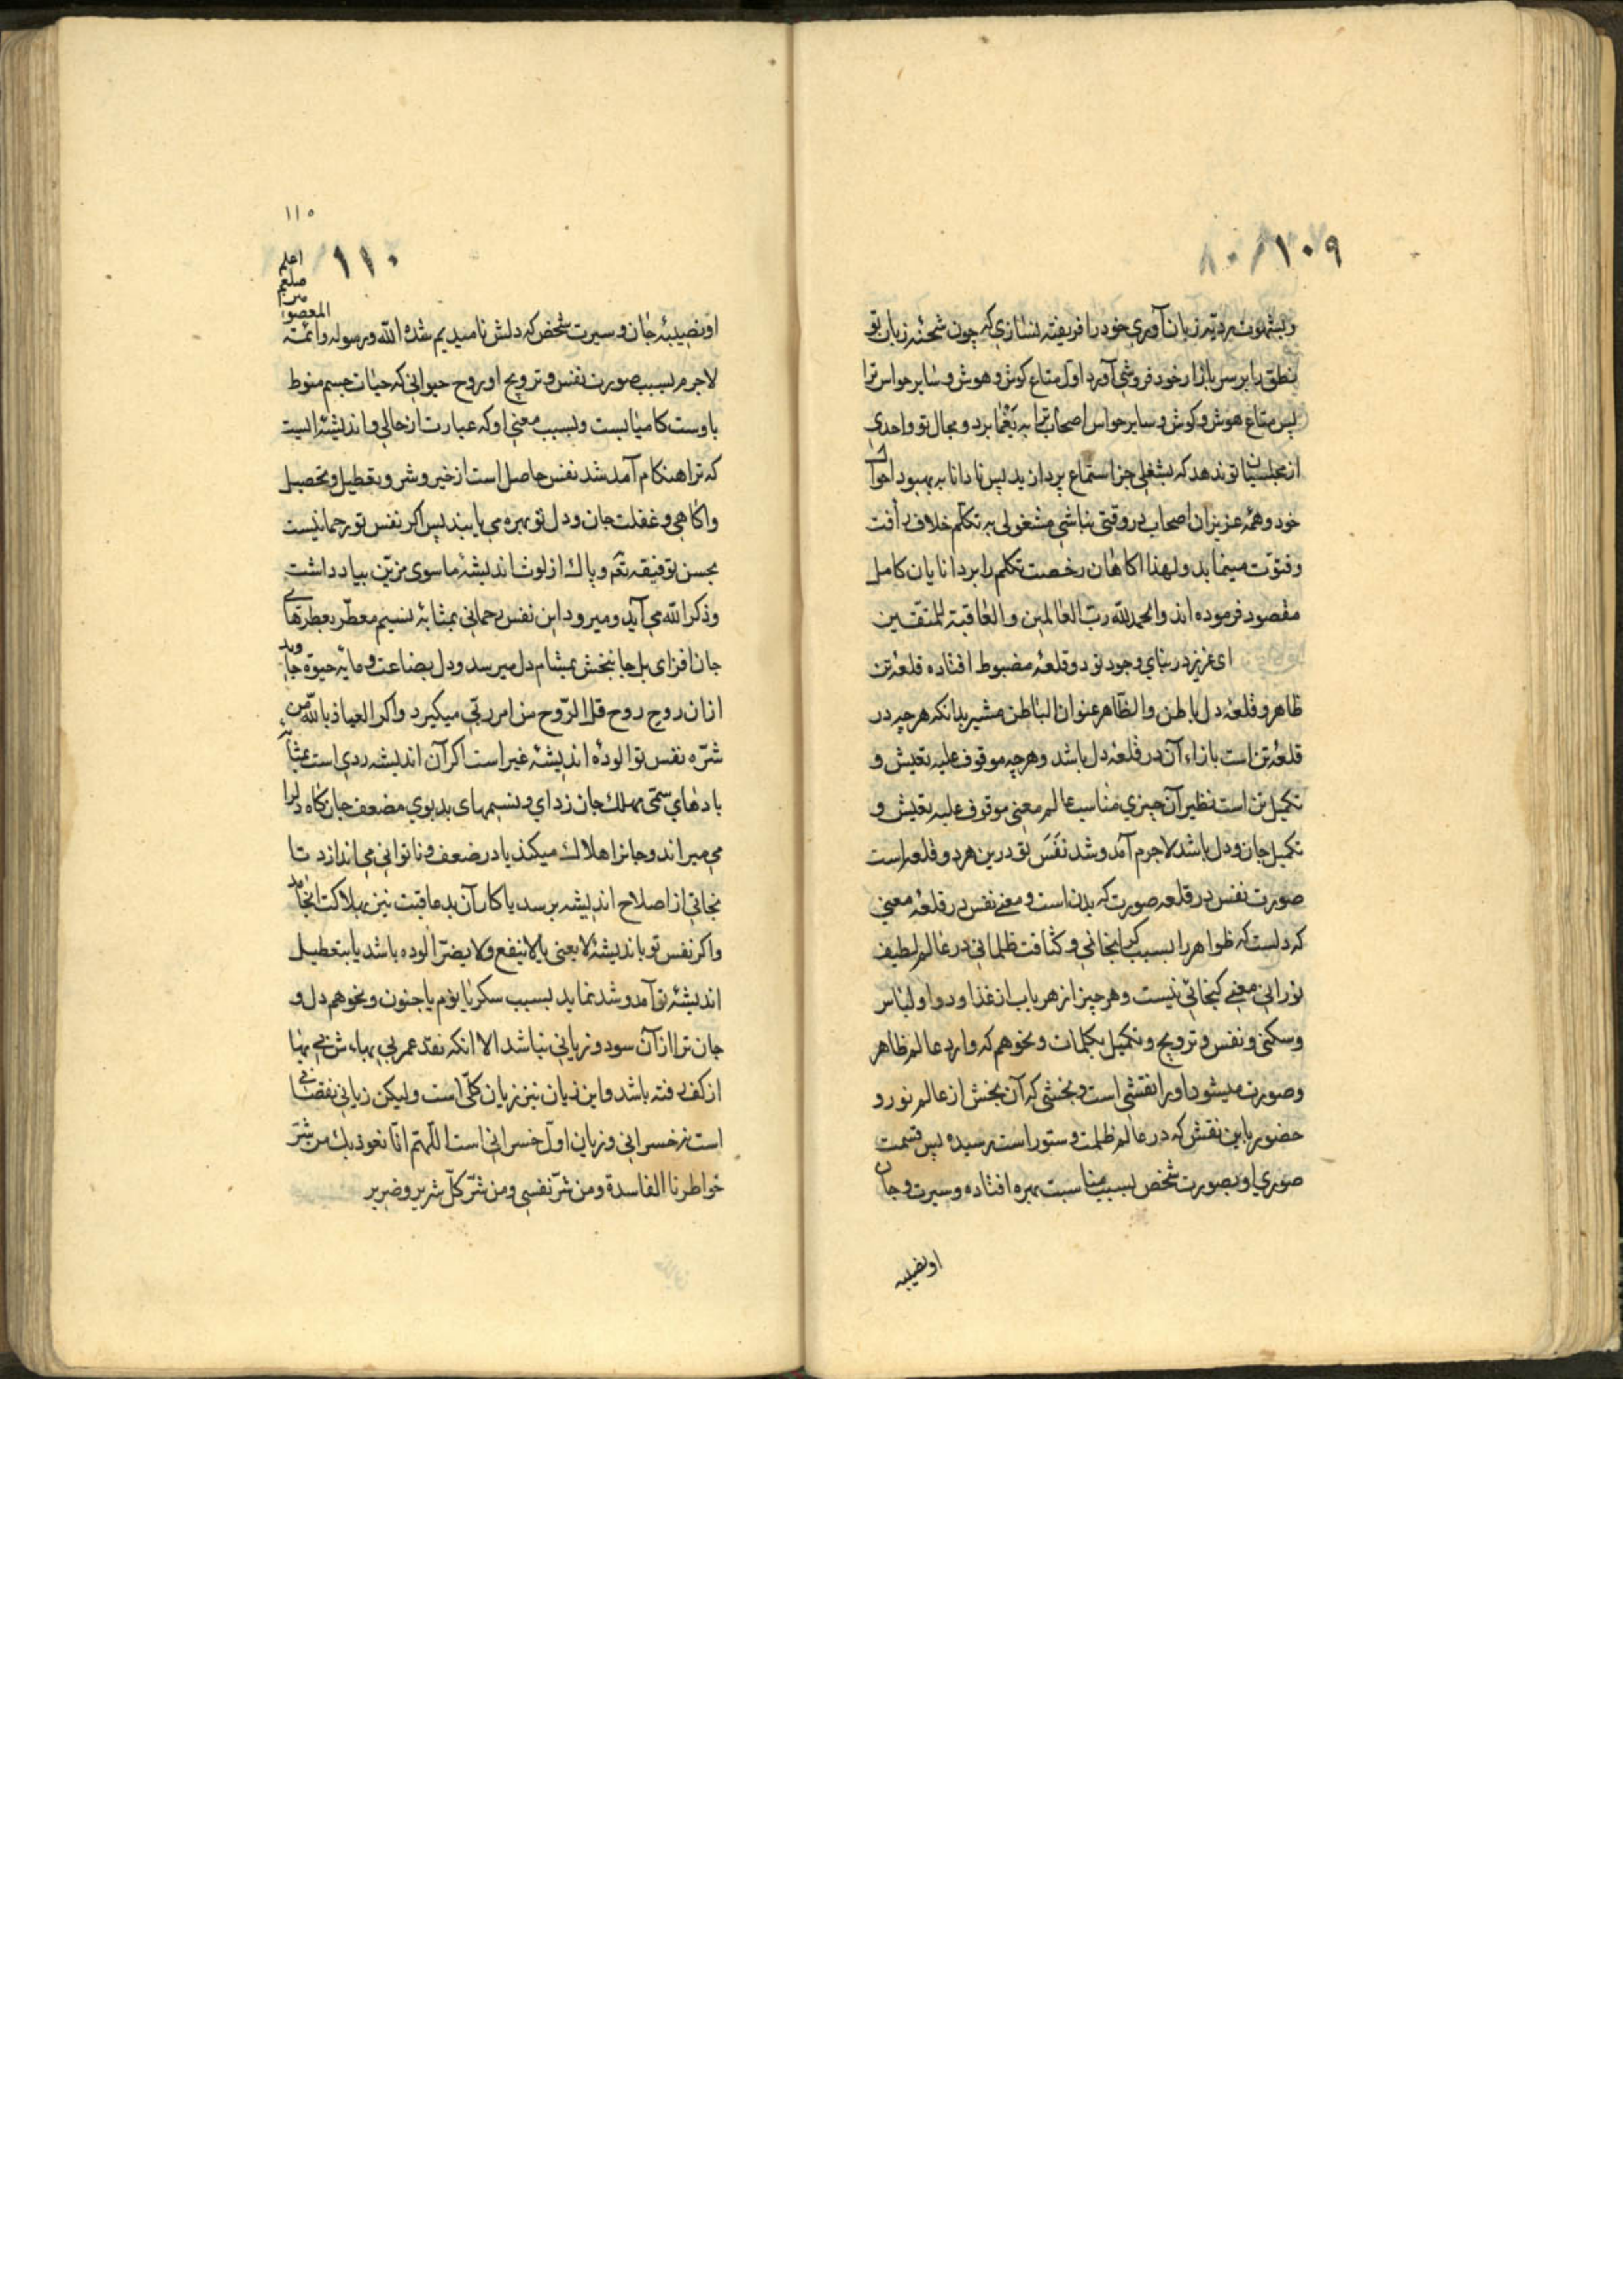 ١٠٩
و بشهوت ردیه زبان آوری خود را فریفته نسازی که چون شحنه زبان تو
نطق را بر سر بازار خود فروشی آورد اول متاع کوش و هوش و سایر حواس ترا
پس متاع هوش و کوش و سایر حواس اصحاب ترا به یغما برد و مجال تو واحدی
از مجلسیان تو ندهد که بشغلی جز استماع پردازید پس نادانا به بهبود احوال
خود و همهٔ عزیزان اصحاب در وقتی نباشی مشغولی به تکلم خلاف رأفت
و فتوّت مینماید ولهذا اکاهان رخصت تکلم را بر دانایان کامل
مقصود فرموده اند والحمد لله ربّ العالمین والعاقبة للمتقین
ای عزیز در بنای وجود تو دو قلعهٔ مضبوط افتاده قلعهٔ تن
ظاهر و قلعهٔ دل باطن والظاهر عنوان الباطن مشیر بدانکه هر چه در
قلعهٔ تن است بازاء آن در قلعهٔ دل باشد و هر چه موقوف علیه تعیش و
تکمیل تن است نظیر آن چیزی مناسب عالم معنی موقوف علیه تعیش و
تکمیل جان و دل باشد لاجرم آمد و شد نَفَس تو درین هر دو قلعه است
صورت نفس در قلعه صورت که بدن است و معنی نفس در قلعهٔ معنی
که دلست که ظواهر را بسبب کرانجانی و کثافت ظلمانی در عالم لطیف
نورانی معنی کنجائی نیست و هر چیز از هر باب از غذا و دوا و لباس
و سکنی و نفس و ترویح و تکمیل بکلمات و نحو هم که وارد عالم ظاهر
و صورت میشود او را نقشی است و بخشی که آن بخش از عالم نور و
حضور باین نقش که در عالم ظلمت و ستور است رسیده پس قسمت
صوری او بصورت شخص بسبب مناسبت بهره افتاده و سیرت و جان
او نصیبه
١١٠
١١٠
اعلم
صلعم
المعصو
او نصیبهٔ جان و سیرت شخص که دلش نامیدیم شده الله ورسوله وائمته
لاجرم بسبب صورت نفس و ترویح او روح حیوانی که حیات جسم منوط
باوست کامیابست و بسبب معنی او که عبارت از حالی و اندیشهٔ ایست
که ترا هنکام آمد شد نفس حاصل است از خیر و شر و تعطیل و تحصیل
و اکاهی و غفلت جان و دل تو بهره می یابند پس اکر نفس تو رحمانیست
بحسن توفیقه تعم و پاک از لوث اندیشهٔ ما سوی مزیّن بیاد داشت
و ذکر الله می آید و میرود این نفس رحمانی بمثابهٔ نسیم معطّر بعطرهای
جان افزای بل جانبخش بمشام دل میرسد و دل بضاعت و مایهٔ حیوة جاوید
از ان روح روح قل الرّوح من امر ربّی میکیرد و اکر العیاذ بالله من
شرّه نفس تو الودهٔ اندیشهٔ غیر است اکر آن اندیشه ردی است بمثابه
بادهای سمّی مهلک جان زدای و نسیمهای بدبوی مضعف جان کاه دلرا
می میراند و جانرا هلاک میکند یا در ضعف و ناتوانی می اندازد تا
نجاتی از اصلاح اندیشه برسد یا کار آن بد عاقبت نیز بهلاکت انجامد
و اکر نفس تو باندیشهٔ لا یعنی یا لا ینفع ولا یضرّ الوده باشد یا بتعطیل
اندیشهٔ تو آمد و شد نماید بسبب سکر یا نوم یا جنون و نحو هم دل و
جان ترا از آن سود و زیانی نباشد الا انکه نقد عمر بی بهاء ش بی بها
از کف رفته باشد و این زیان نیز زیان کلّی است و لیکن زیانی نقصانی
است نه خسرانی و زیان اول خسرانی است اللّهمّ انّا نعوذ بک من شرّ
خواطرنا الفاسدة ومن شرّ نفسی ومن شرّ کلّ شریر وضریر